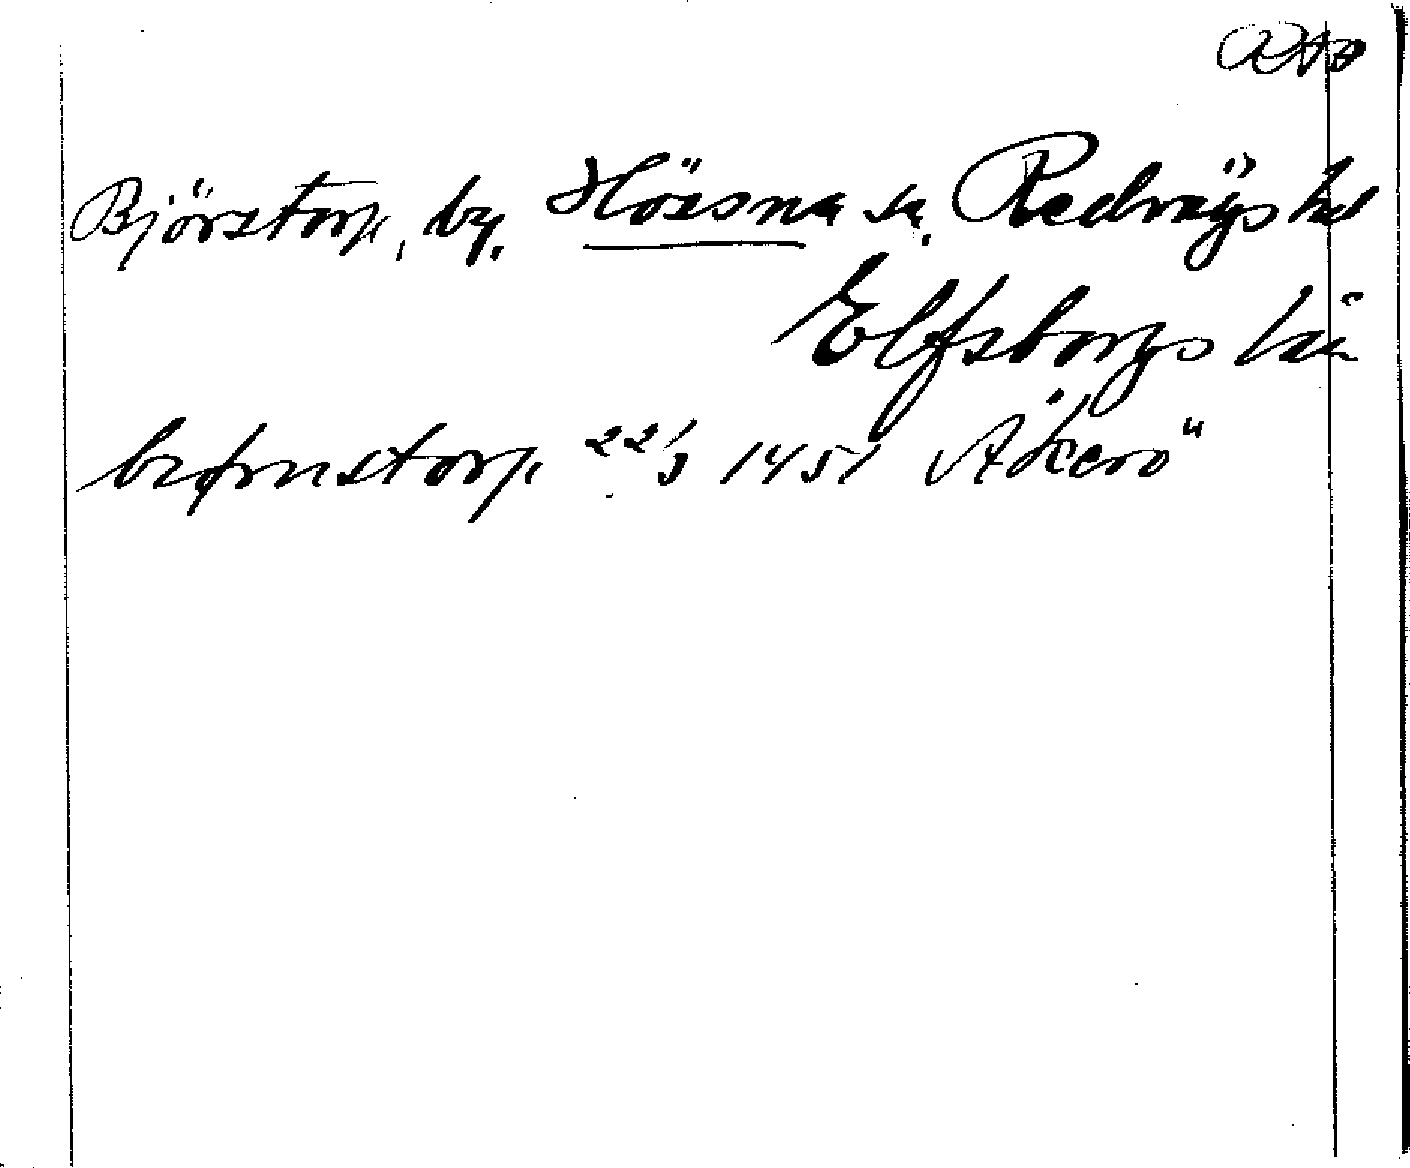 Björstorp, by. Hössna sn. Redvägs hd
Elfsborgs län
biørnstorp 22/3 1451 Åkerö